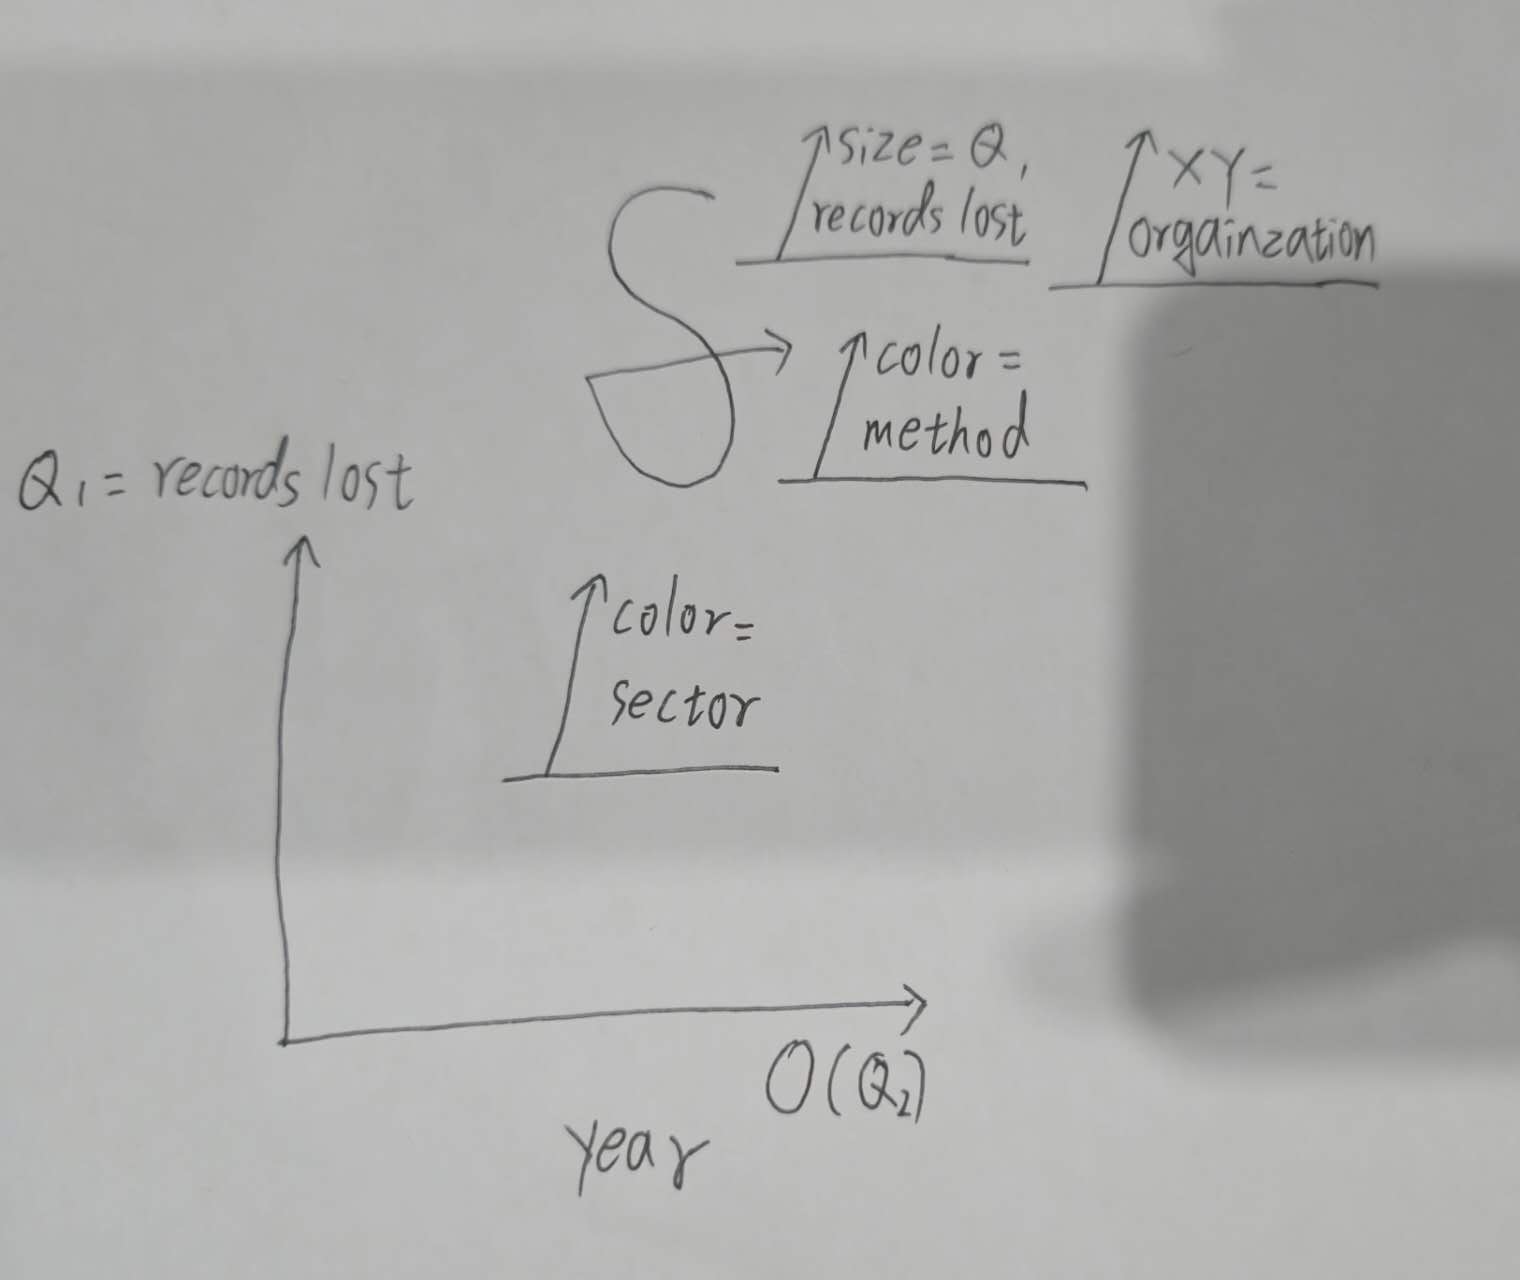 size = Q1
records lost
XY =
orgainzation
color =
method
Q1 = records lost
color =
sector
O(Q2)
year